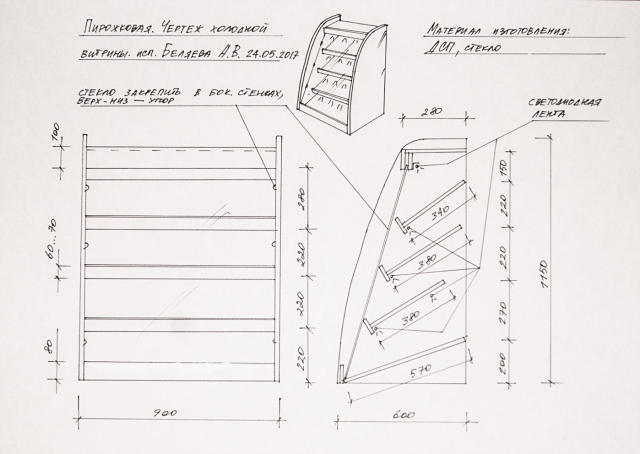 Пирожковая. Чертеж холодной
витрины. исп. Беляева А.В. 24.05.2017
Материал изготовления:
ДСП, стекло
Стекло закрепить в бок. стенках,
верх-низ — упор
Светодиодная
лента
280
100
60...70
80
280
220
220
220
900
340
380
380
570
600
150
220
220
270
200
1150